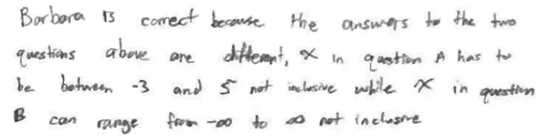 Barbara is correct because the answers to the two
questions above are different, x in question A has to
be between -3 and 5 not inclusive while x in question
B can range from -∞ to ∞ not inclusive